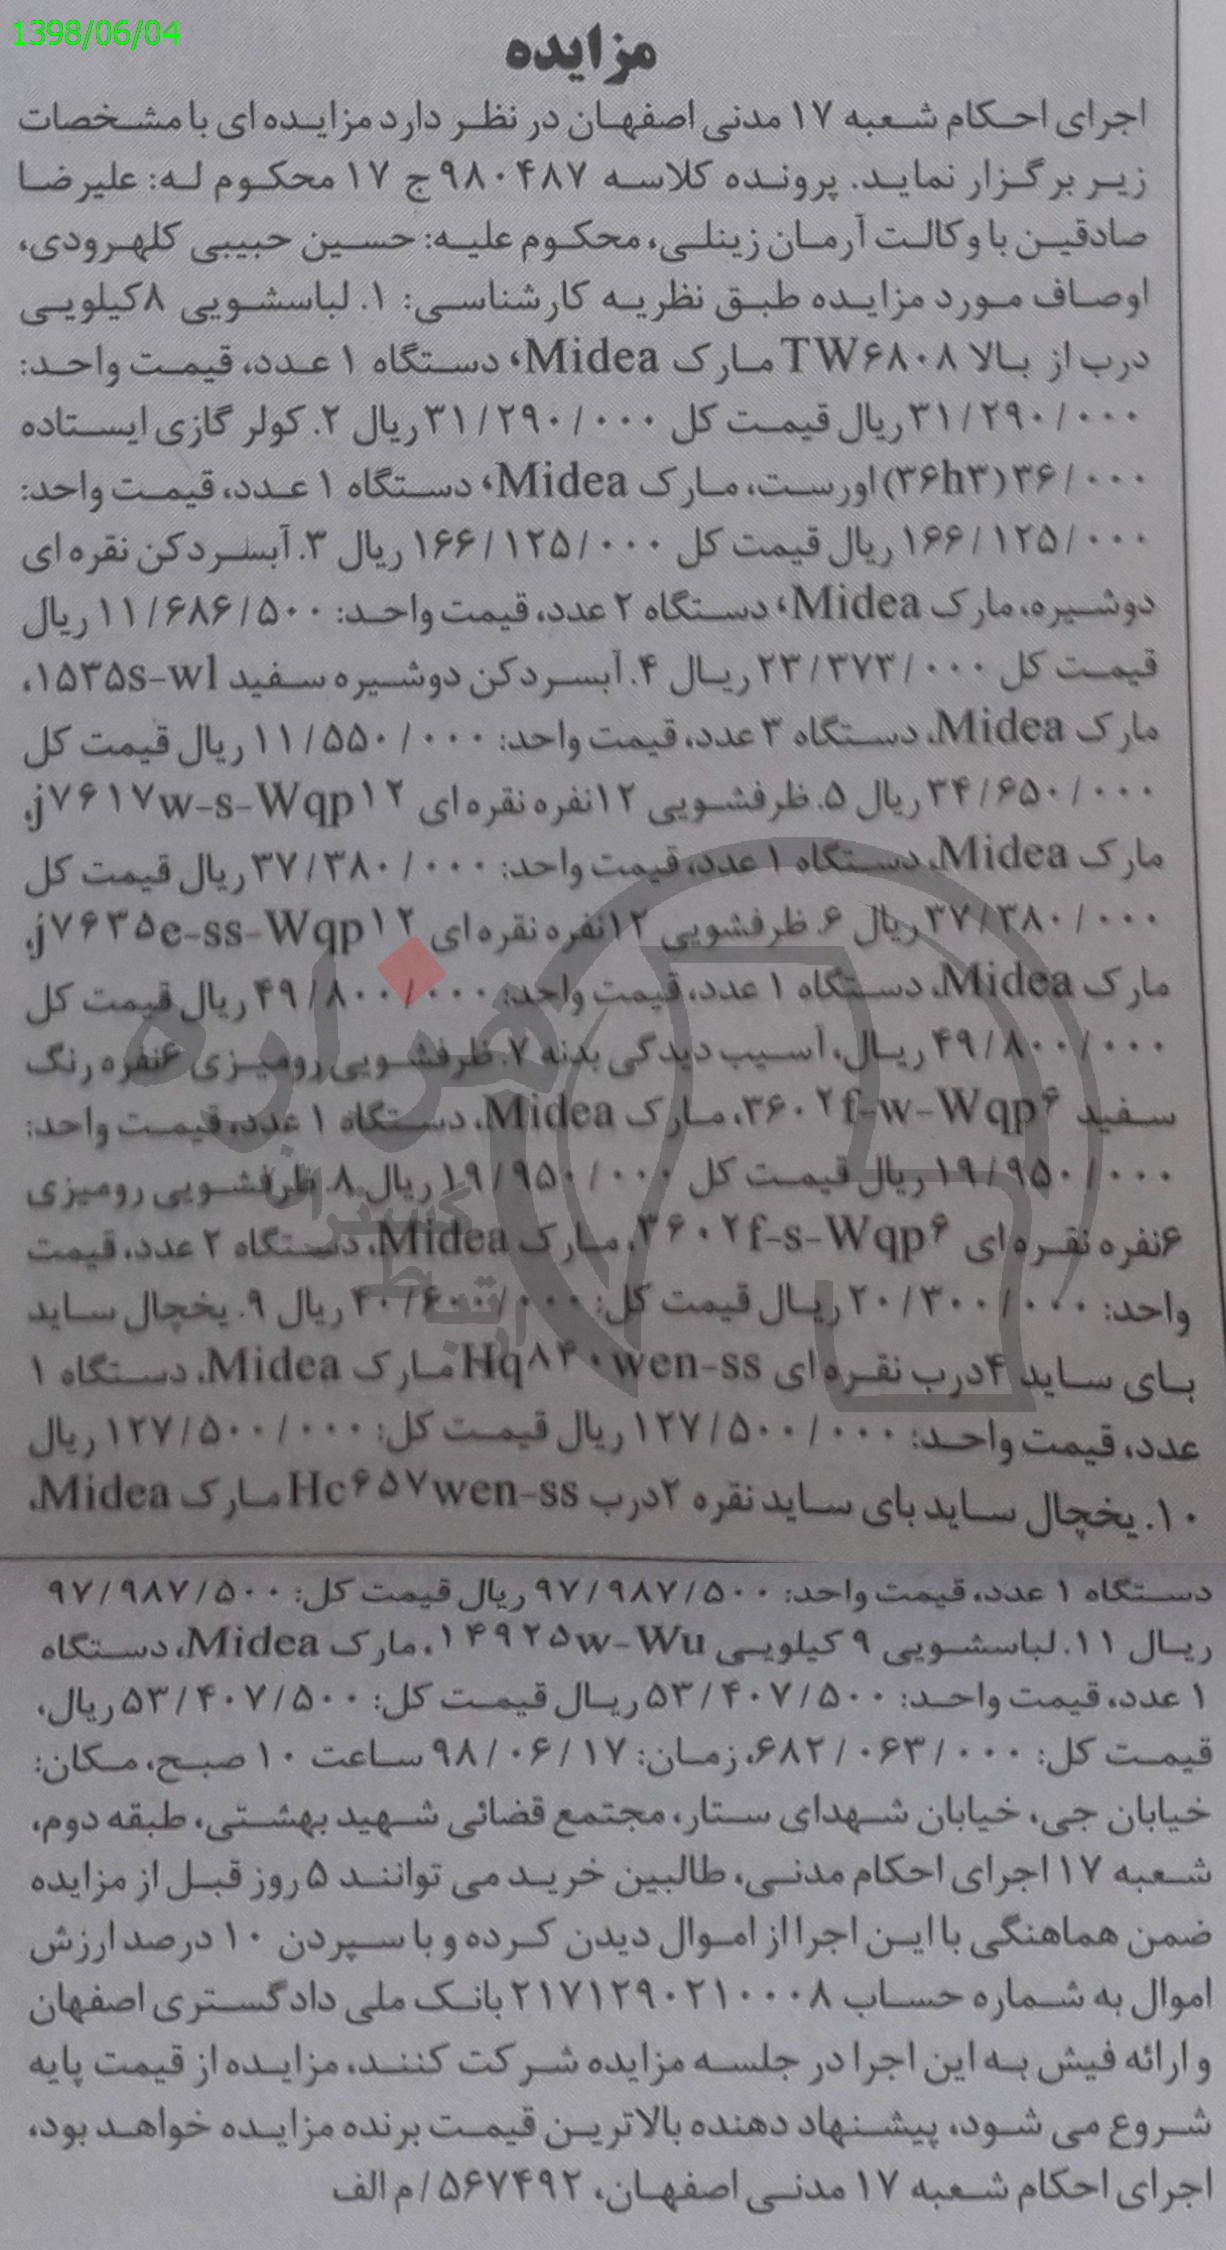 1398/06/04
مزایده
اجرای احکام شعبه ۱۷ مدنی اصفهان در نظر دارد مزایده ای با مشخصات
زیر برگزار نماید. پرونده کلاسه ۹۸۰۴۸۷ج ۱۷ محکوم له: علیرضا
صادقین با وکالت آرمان زینلی، محکوم علیه: حسین حبیبی کلهرودی،
اوصاف مورد مزایده طبق نظریه کارشناسی: ۱. لباسشویی ۸کیلویی
درب از بالا TW۶۸۰۸ مارک Midea، دستگاه ۱ عدد، قیمت واحد:
۳۱/۲۹۰/۰۰۰ ریال قیمت کل ۳۱/۲۹۰/۰۰۰ ریال ۲. کولر گازی ایستاده
۳۶/۰۰۰ (۳۶h۳) اورست، مارک Midea، دستگاه ۱ عدد، قیمت واحد:
۱۶۶/۱۲۵/۰۰۰ ریال قیمت کل ۱۶۶/۱۲۵/۰۰۰ ریال ۳. آبسردکن نقره ای
دوشیره، مارک Midea، دستگاه ۲ عدد، قیمت واحد: ۱۱/۶۸۶/۵۰۰ ریال
قیمت کل ۲۳/۳۷۳/۰۰۰ ریال ۴. آبسردکن دوشیره سفید ۱۵۳۵s-wl،
مارک Midea، دستگاه ۳ عدد، قیمت واحد: ۱۱/۵۵۰/۰۰۰ ریال قیمت کل
۳۴/۶۵۰/۰۰۰ ریال ۵. ظرفشویی ۱۲نفره نقره ای j۷۶۱۷w-s-Wqp۱۲،
مارک Midea، دستگاه ۱ عدد، قیمت واحد: ۳۷/۳۸۰/۰۰۰ ریال قیمت کل
۳۷/۳۸۰/۰۰۰ ریال ۶. ظرفشویی ۱۲نفره نقره ای j۷۶۳۵e-ss-Wqp۱۲،
مارک Midea، دستگاه ۱ عدد، قیمت واحد: ۴۹/۸۰۰/۰۰۰ ریال قیمت کل
۴۹/۸۰۰/۰۰۰ ریال، آسیب دیدگی بدنه ۷. ظرفشویی رومیزی ۶نفره رنگ
سفید ۳۶۰۲f-w-Wqp۶، مارک Midea، دستگاه ۱ عدد، قیمت واحد:
۱۹/۹۵۰/۰۰۰ ریال قیمت کل ۱۹/۹۵۰/۰۰۰ ریال ۸. ظرفشویی رومیزی
۶نفره نقره ای ۳۶۰۲f-s-Wqp۶، مارک Midea، دستگاه ۲ عدد، قیمت
واحد: ۲۰/۳۰۰/۰۰۰ ریال قیمت کل: ۴۰/۶۰۰/۰۰۰ ریال ۹. یخچال ساید
بای ساید ۴درب نقره ای Hq۸۴۰wen-ss مارک Midea، دستگاه ۱
عدد، قیمت واحد: ۱۲۷/۵۰۰/۰۰۰ ریال قیمت کل: ۱۲۷/۵۰۰/۰۰۰ ریال
۱۰. یخچال ساید بای ساید نقره ۲درب Hc۶۵۷wen-ss مارک Midea،
دستگاه ۱ عدد، قیمت واحد: ۹۷/۹۸۷/۵۰۰ ریال قیمت کل: ۹۷/۹۸۷/۵۰۰
ریال ۱۱. لباسشویی ۹ کیلویی ۱۴۹۲۵w-Wu، مارک Midea، دستگاه
۱ عدد، قیمت واحد: ۵۳/۴۰۷/۵۰۰ ریال قیمت کل: ۵۳/۴۰۷/۵۰۰ ریال،
قیمت کل: ۶۸۲/۰۶۳/۰۰۰، زمان: ۹۸/۰۶/۱۷ ساعت ۱۰ صبح، مکان:
خیابان جی، خیابان شهدای ستار، مجتمع قضائی شهید بهشتی، طبقه دوم،
شعبه ۱۷ اجرای احکام مدنی، طالبین خرید می توانند ۵ روز قبل از مزایده
ضمن هماهنگی با این اجرا از اموال دیدن کرده و با سپردن ۱۰ درصد ارزش
اموال به شماره حساب ۲۱۷۱۲۹۰۲۱۰۰۰۸ بانک ملی دادگستری اصفهان
و ارائه فیش به این اجرا در جلسه مزایده شرکت کنند، مزایده از قیمت پایه
شروع می شود، پیشنهاد دهنده بالاترین قیمت برنده مزایده خواهد بود،
اجرای احکام شعبه ۱۷ مدنی اصفهان، ۵۶۷۴۹۲/م الف
هزاره
گستران
ارتباط